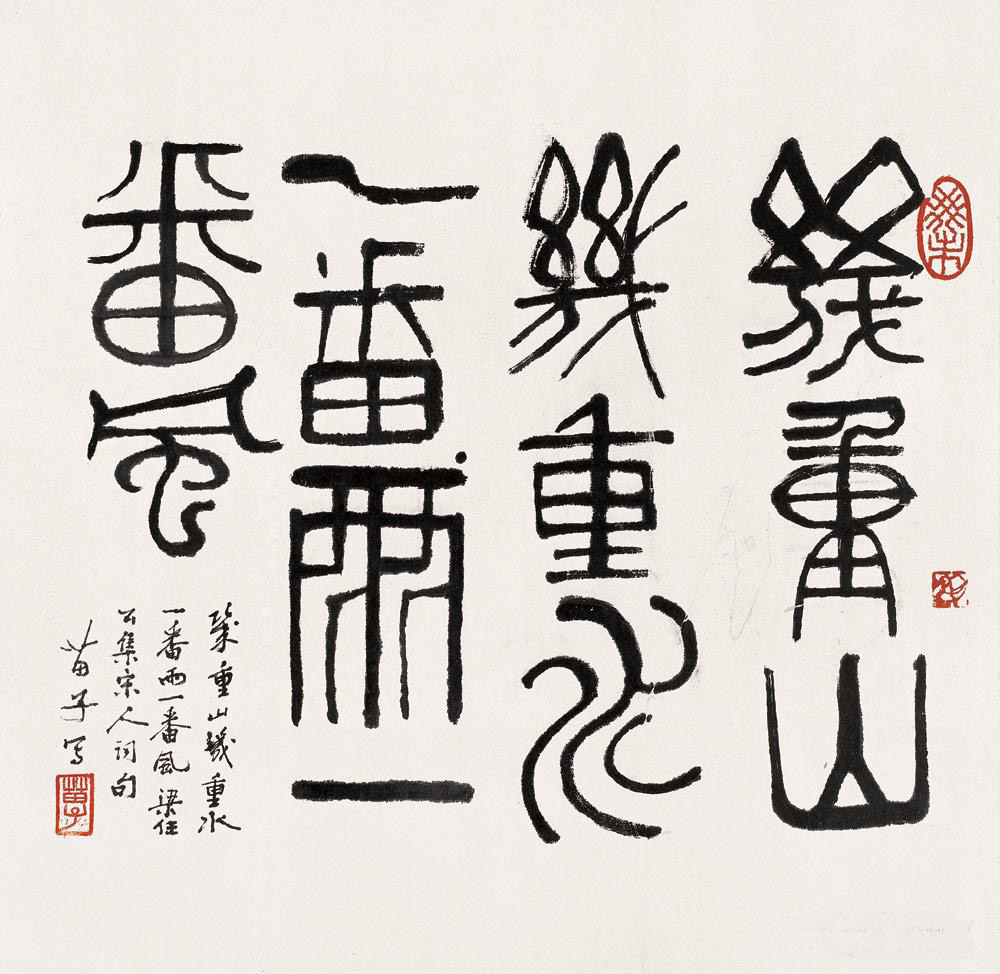 幾重山
幾重水
一番雨一
番風
幾重山幾重水
一番雨一番風梁任
公集宋人詞句
苗子写